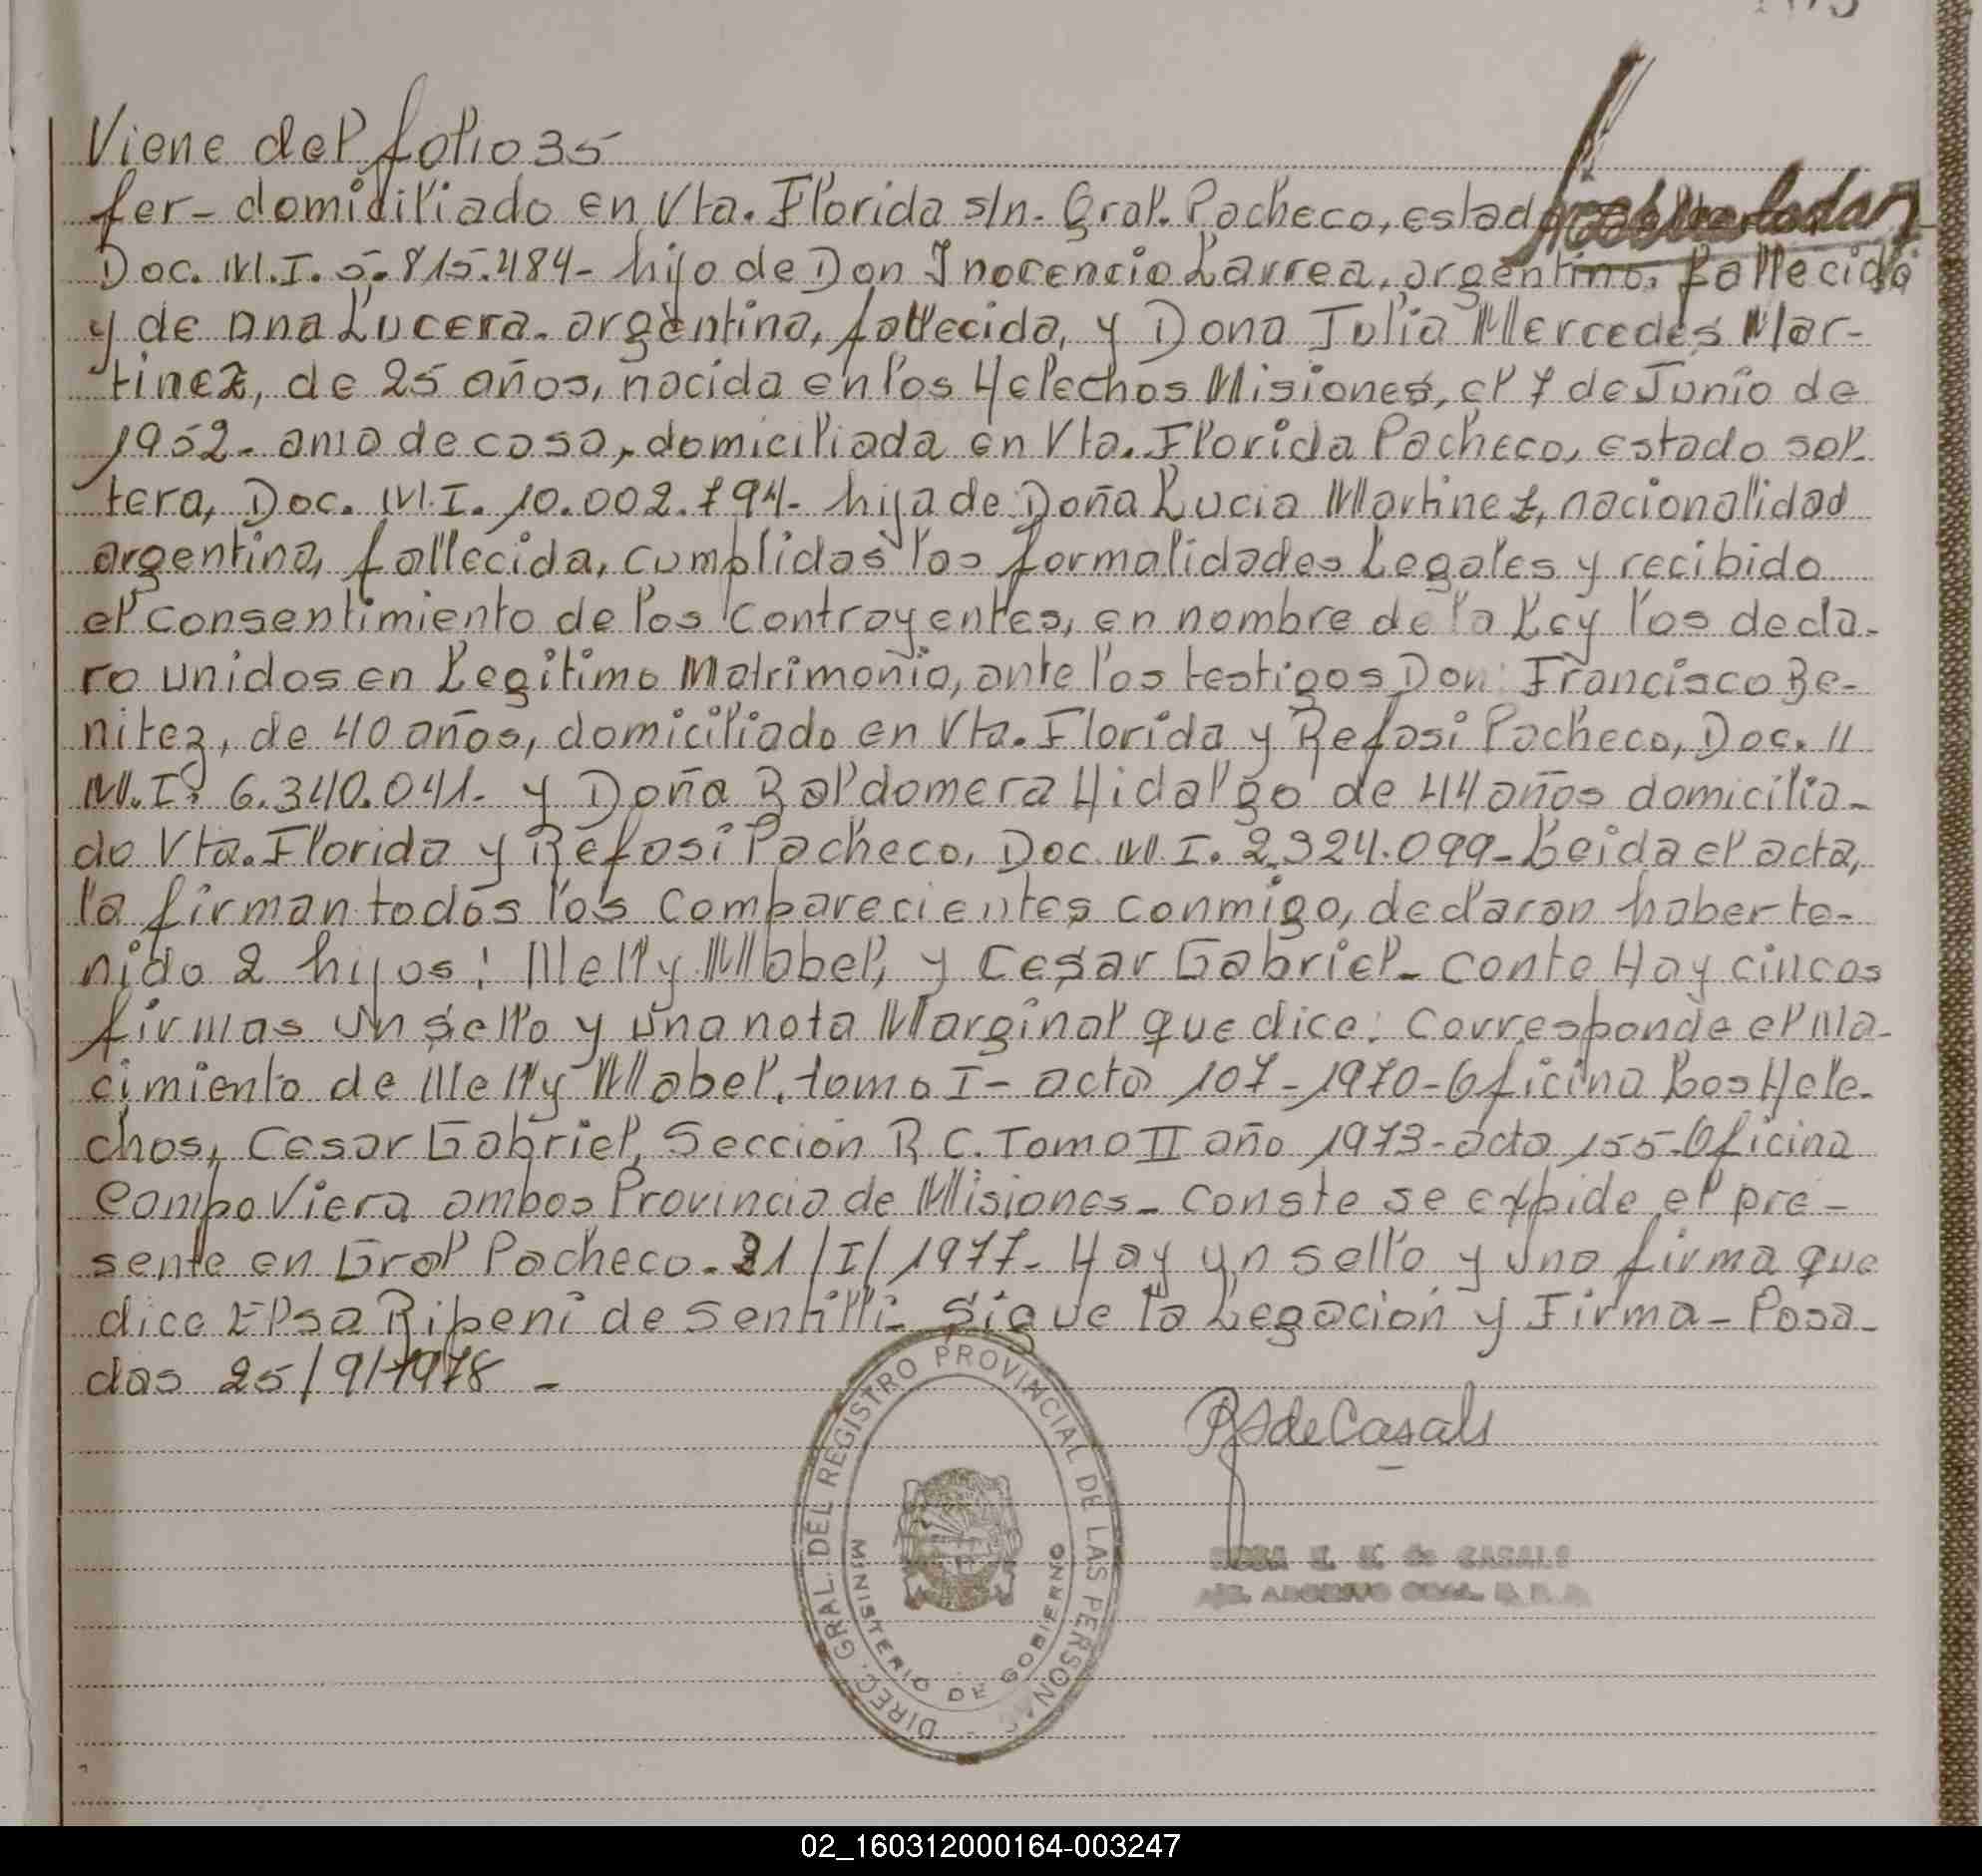 Viene del folio 35
fer- domiciliado en Vta. Florida s/n- Gral. Pacheco, estado
Doc. M.I. 5.815.484- hijo de Don Inocencio Larrea, argentino, fallecido
y de Ana Lucera- argentina, fallecida, y Dona Julia Mercedes Mar-
tinez, de 25 años, nacida en los Helechos Misiones, el 7 de Junio de
1952- ama de casa, domiciliada en Vta. Florida Pacheco, estado sol-
tera, Doc. M.I. 10.002.794- hija de Doña Lucia Martinez, nacionalidad
argentina, fallecida, cumplidas las formalidades Legales y recibido
el consentimiento de los contrayentes, en nombre de la Ley los decla-
ro unidos en Legitimo Matrimonio, ante los testigos Don Francisco Be-
nitez, de 40 años, domiciliado en Vta. Florida y Refosi Pacheco, Doc. "
M.I. 6.340.041- y Doña Baldomera Hidalgo de 44 años domicilia-
do Vta. Florida y Refosi Pacheco, Doc. M.I. 2.324.099- Leida el acta,
la firman todos los comparecientes conmigo, declaran haber te-
nido 2 hijos: Nelly Mabel, y Cesar Gabriel- conte Hay cincos
firmas un sello y una nota Marginal que dice: Corresponde el Na-
cimiento de Nelly Mabel, tomo I- acta 107-1970-Oficina Los Hele-
chos, Cesar Gabriel, Sección R.C. Tomo II año 1973-acta 155-Oficina
Campo Viera ambos Provincia de Misiones- conste se expide el pre-
sente en Gral Pacheco- 21/I/1977- Hay un sello y una firma que
dice Elsa Ripeni de Sentilli- Sigue la Legacion y Firma- Posa-
das 25/9/1978 -
RS de Casals
DIREC. GRAL. DEL REGISTRO PROVINCIAL DE LAS PERSONAS
MINISTERIO DE GOBIERNO
ROSA de CASALS
02_160312000164-003247